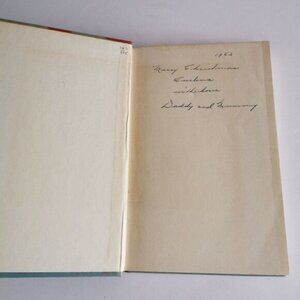 1952
Merry Christmas
with love
Daddy and Mummy